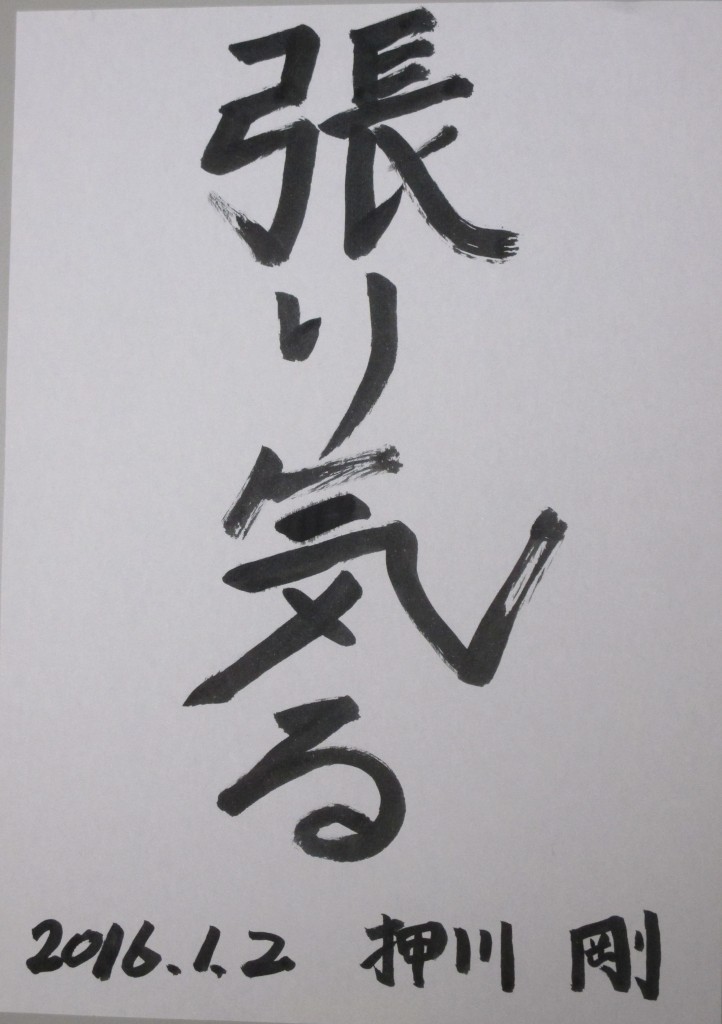 張り気る
2016.1.2 押川 剛